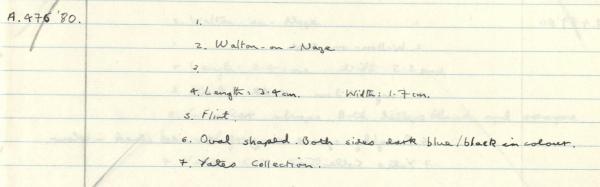 A.476 '80. 1.
2. Walton-on-Naze
3.
4. Length: 3.4cm. Width: 1.7cm.
5. Flint.
6. Oval shaped. Both sides dark blue/black in colour.
7. Yates Collection.